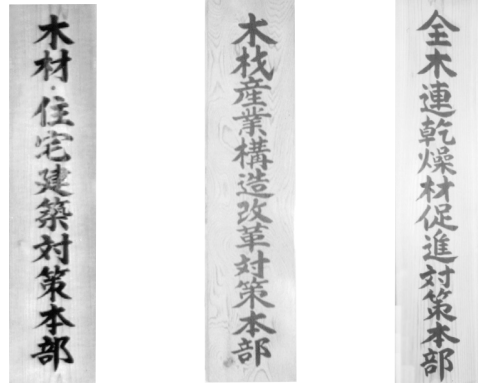 木材・住宅建築対策本部
木材産業構造改革対策本部
全木連乾燥材促進対策本部